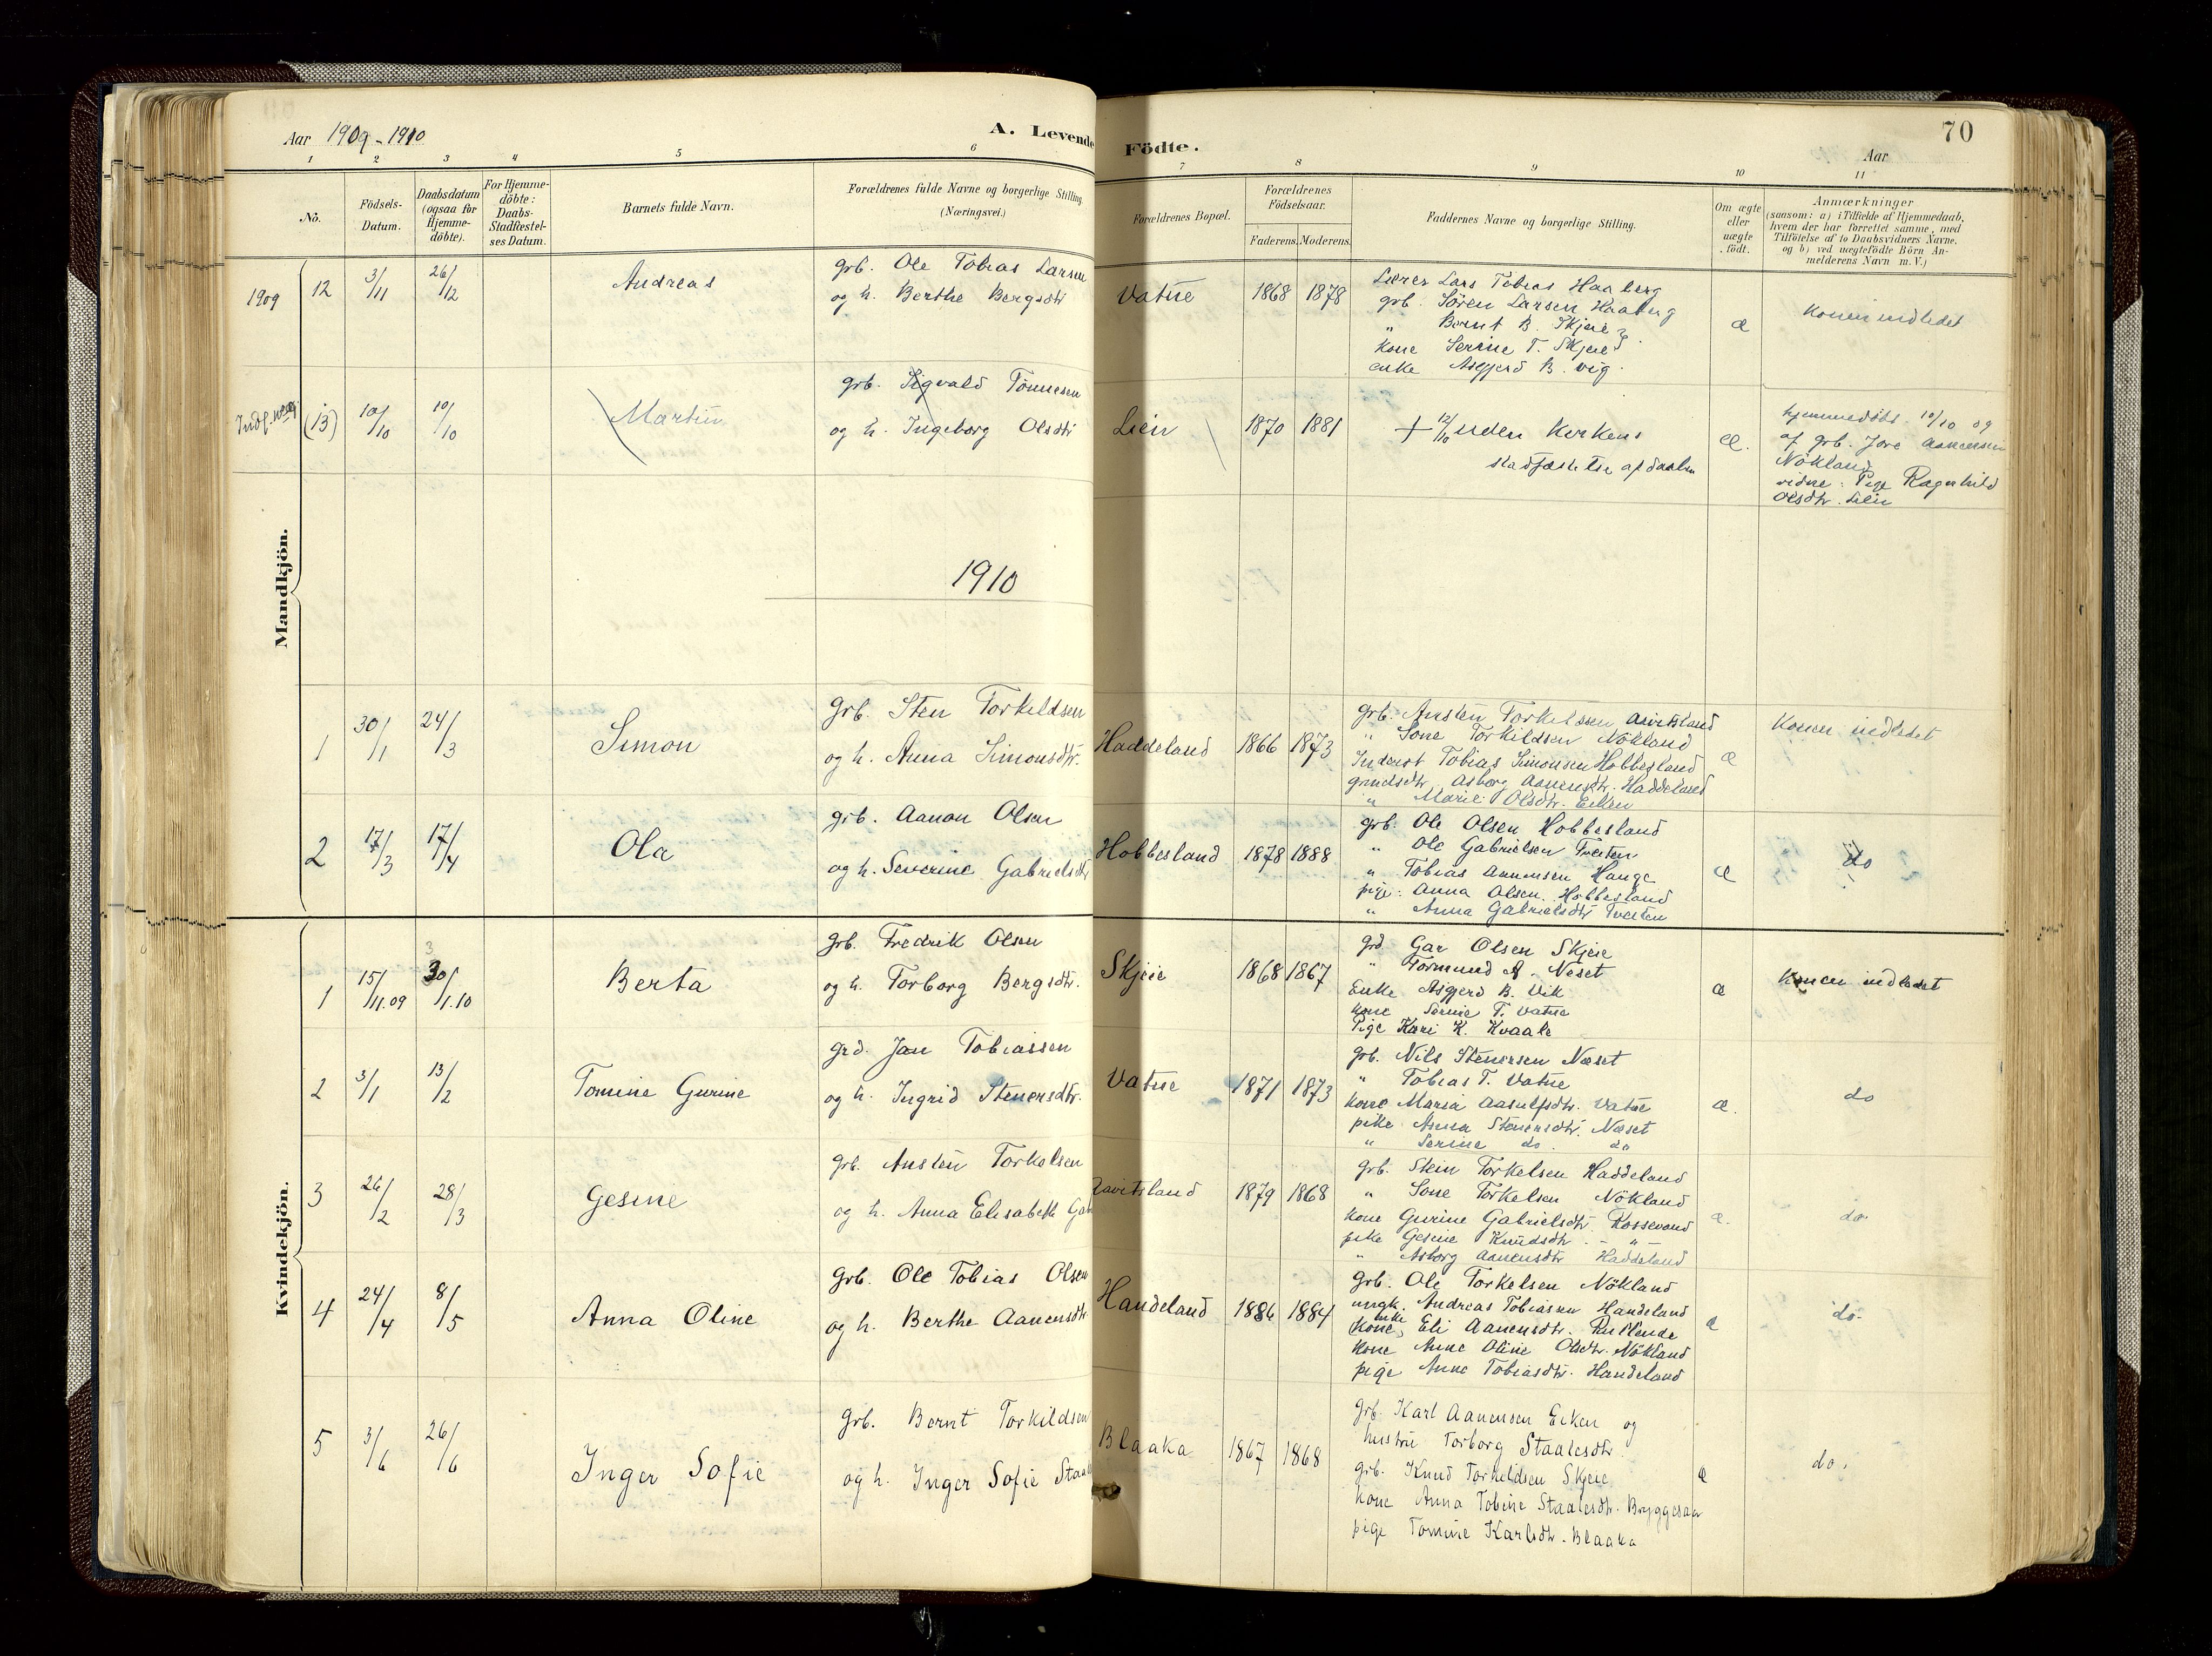 Aar 1909-1910
A. Levende Födte.
70
Aar
1 2 3 4 5 6 7 8 9 10 11
No.
Födsels-Datum.
Daabsdatum (ogsaa for Hjemme-döbte).
For Hjemme-döbte: Daabs-Stadfæstel-ses Datum.
Barnets fulde Navn.
Forældrenes fulde Navne og borgerlige Stilling (Næringsvei.)
Forældrenes Bopæl.
Forældrenes Födselsaar.
Faderens. Moderens.
Faddernes Navne og borgerlige Stilling.
Om ægte eller uægte födt.
Anmærkninger
(saasom: a) i Tilfælde af Hjemmedaab,
hvem der har forrettet samme, med
Tilföielse af to Daabsvidners Navne,
og b) ved uægtefödte Börn An-
melderens Navn m. V.)
Mandkjön.
1909 12 3/11 26/12 Andreas
grb. Ole Tobias Larsen
og h. Berthe Bergsdtr
Vatne 1868 1878
Lærer Lars Tobias Haaberg
grb. Sören Larsen Haaberg
" Bernt B. Skjeie
kone Serine T. Skjeie
enke Asgjerd B. Vig.
æ
Konen indledet
(13) 10/10 10/10 Martin
grb. Sigvald Tönnesen
og h. Ingeborg Olsdtr
Lien 1870 1881
+ 12/10 uden Kirkens
stadfæstelse af daaben
æ.
hjemmedöbt 10/10 09
af grb. Jore Aanensen
Nökland
vidne: Pige Ragnhild
Olsdtr. Lien
1910
1 30/1 24/3 Simon
grb. Sten Torkildsen
og h. Anna Simonsdtr.
Haddeland 1866 1873
grb. Austen Torkelsen
" Sone Torkildsen Nökland
Inderst Tobias Simonsen Hobbesland
grmdsdtr. Asborg Aanensdtr. Haddeland
" Marie Olsdtr. Eiken
æ
Konen indledet
2 17/3 17/4 Ola
grb. Aanon Olsen
og h. Severine Gabrielsdtr
Hobbesland 1878 1888
grb. Ole Olsen Hobbesland
" Ole Gabrielsen Tveiten
" Tobias Aanensen Hauge
pige. Anna Olsen. Hobbesland
" Anna Gabrielsdtr Tveiten
æ
do
Kvindekjön.
1 15/11.09 30/1.10 Berta
grb. Fredrik Olsen
og h. Torborg Bergsdtr.
Skjeie 1868 1867
grd Gar Olsen Skjeie
" Tormund A. Neset
Enke Asgjerd B. Vik
kone Serine T. Vatne
Pige Kari K. Kvaale
æ
Konen indledet
2 3/1 13/2 Tomine Gurine
grd. Jan Tobiassen
og h. Ingrid Stenersdtr.
Vatne 1871 1873
grb. Nils Stenersen Næset
" Tobias T. Vatne
kone Maria Aasulfsdtr. Vatne
pike Anna Stenersdtr. Næset
" Serine do. do
æ.
do
3 26/2 28/3 Gesine
grb. Austen Torkelsen
og h. Anna Elisabeth
1879 1868
grb. Stein Torkelsen Haddeland
" Sone Torkelsen Nökland
kone Gurine Gabrielsdtr. Rossevand
pike Gesine Knudsdtr. - " -
" Asborg Aanensdtr Haddeland
æ.
do.
4 24/4 8/5 Anna Oline
grb. Ole Tobias Olsen
og h. Berthe Aanensdtr
Handeland 1886 1884
grb. Ole Torkelsen Nökland
ungk. Andreas Tobiasen Handeland
enke
Kone, Eli Aanensdtr.
kone Anne Oline Olsdtr. Nökland
pige Anne Tobiasdtr. Handeland
æ
do.
5 3/6 26/6 Inger Sofie
grb. Bernt Torkildsen
og h. Inger Sofie
Blaaka 1867 1868
grb. Karl Aanensen Eiken og
hustru Torborg Staalesdtr.
grb. Knud Torkildsen Skjeie
kone Anna Tobine Staalesdtr. Bryggesaa
pige Tomine Karlsdtr. Blaaka
æ
do.